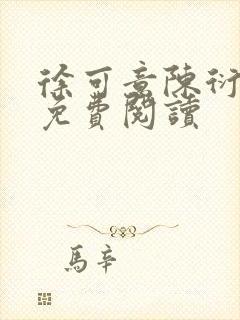 徐可意陳衍
免費閱讀
馬辛